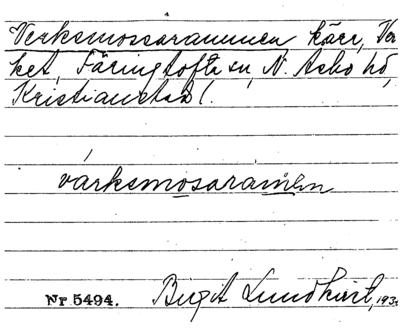 Verksmossarammen kärr, Ver
ket, Färingtofta sn, N. Åsbo hd,
Kristianstad l.
várksmosaramen
Nr 5494. Birgit Lundkvist, 193